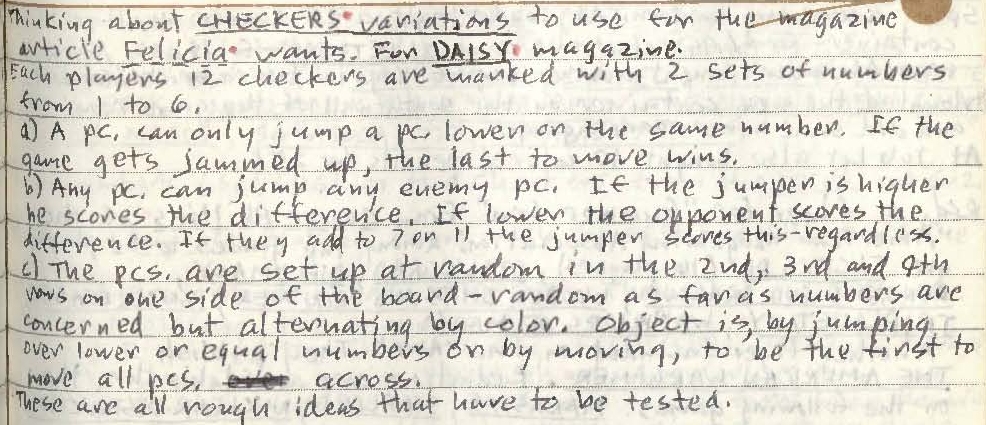 Thinking about CHECKERS variations to use for the magazine
article Felicia wants. For DAISY magazine.
Each players 12 checkers are marked with 2 sets of numbers
from 1 to 6.
a) A pc. can only jump a pc. lower or the same number. If the
game gets jammed up, the last to move wins.
b) Any pc. can jump any enemy pc. If the jumper is higher
he scores the difference. If lower the opponent scores the
difference. If they add to 7 or 11 the jumper scores this-regardless.
c) The pcs. are set up at random in the 2nd, 3rd and 4th
rows on one side of the board - random as far as numbers are
concerned but alternating by color. Object is, by jumping
over lower or equal numbers or by moving, to be the first to
move all pcs. across.
These are all rough ideas that have to be tested.